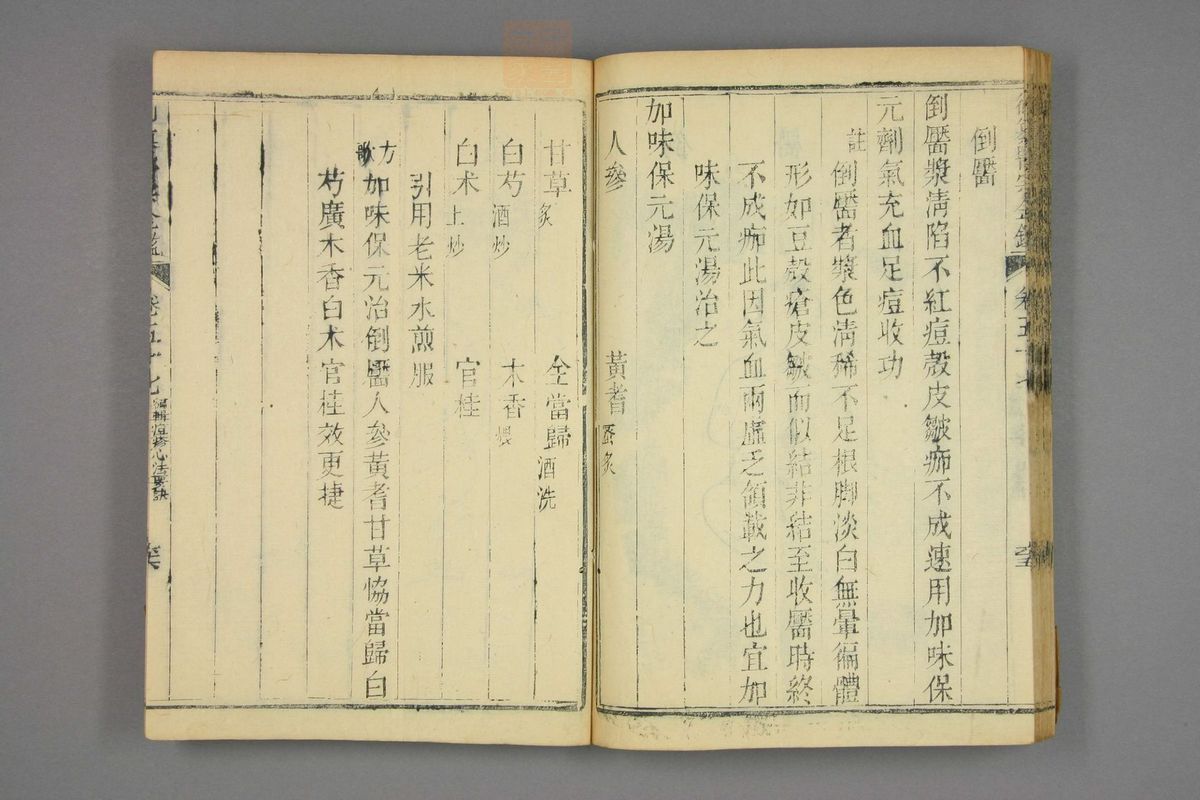 倒靨
倒靨漿淸陷不紅痘殼皮皺痂不成速用加味保
元劑氣充血足痘收功
註
倒靨者漿色淸稀不足根脚淡白無暈徧體
形如豆殼瘡皮皺而似結非結至收靨時終
不成痂此因氣血兩虛乏領載之力也宜加
味保元湯治之
加味保元湯
人參 黃耆 蜜炙
甘草 炙 全當歸 酒洗
白芍 酒炒 木香 煨
白术 土炒 官桂
引用老米水煎服
方歌
加味保元治倒靨人參黃耆甘草恊當歸白
芍廣木香白术官桂效更捷
卷五十七
編輯痘疹心法要訣